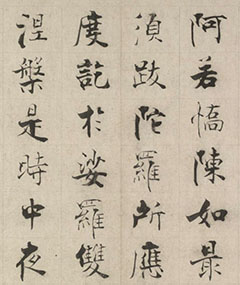 阿若憍陳如最
須跋陀羅所應
度訖於娑羅雙
涅槃是時中夜